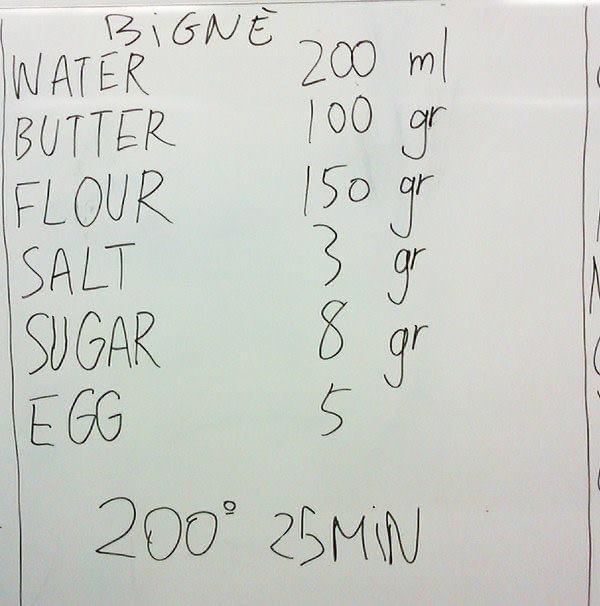 BiGNÈ
WATER 200 ml
BUTTER 100 gr
FLOUR 150 gr
SALT 3 gr
SUGAR 8 gr
EGG 5
200° 25 MiN